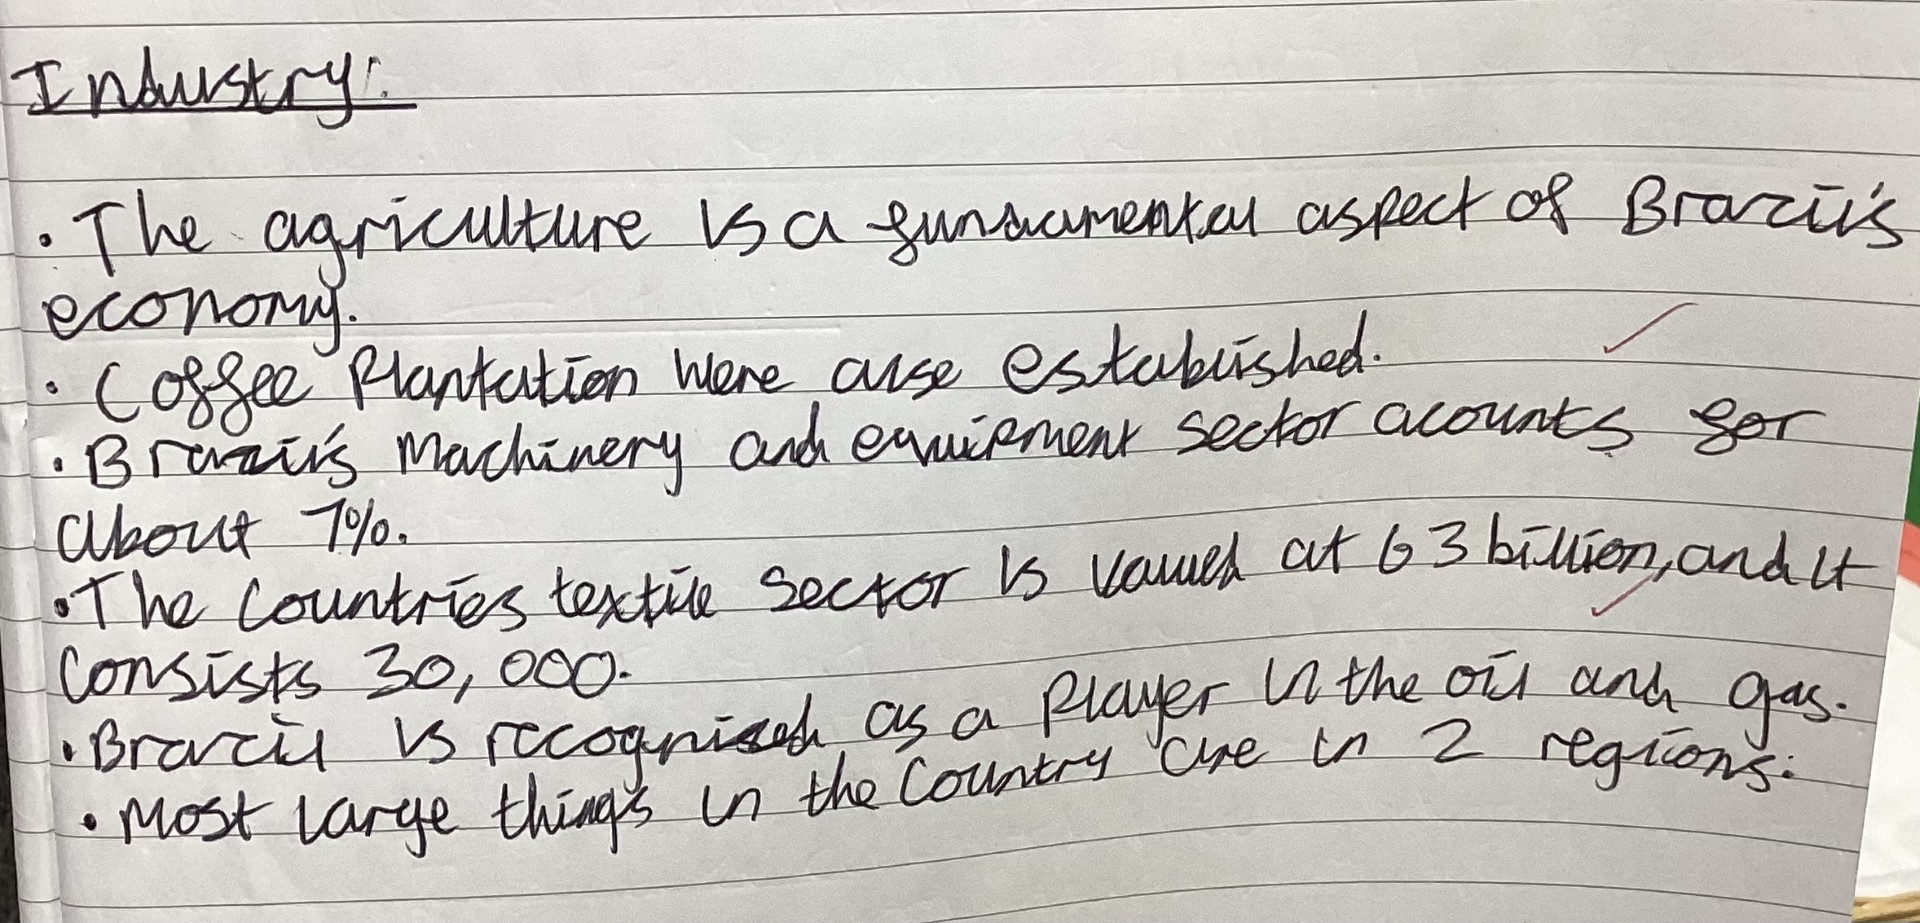 Industry:
• The agriculture is a fundamental aspect of Brazil's
economy.
• Coffee Plantation were also established.
• Brazil's Machinery and equipment sector acounts for
about 7%.
• The Countries textile sector is valued at 63 billion, and it
Consists 30,000.
• Brazil is recognised as a Player in the oil and gas.
• Most large things in the Country are in 2 regions: